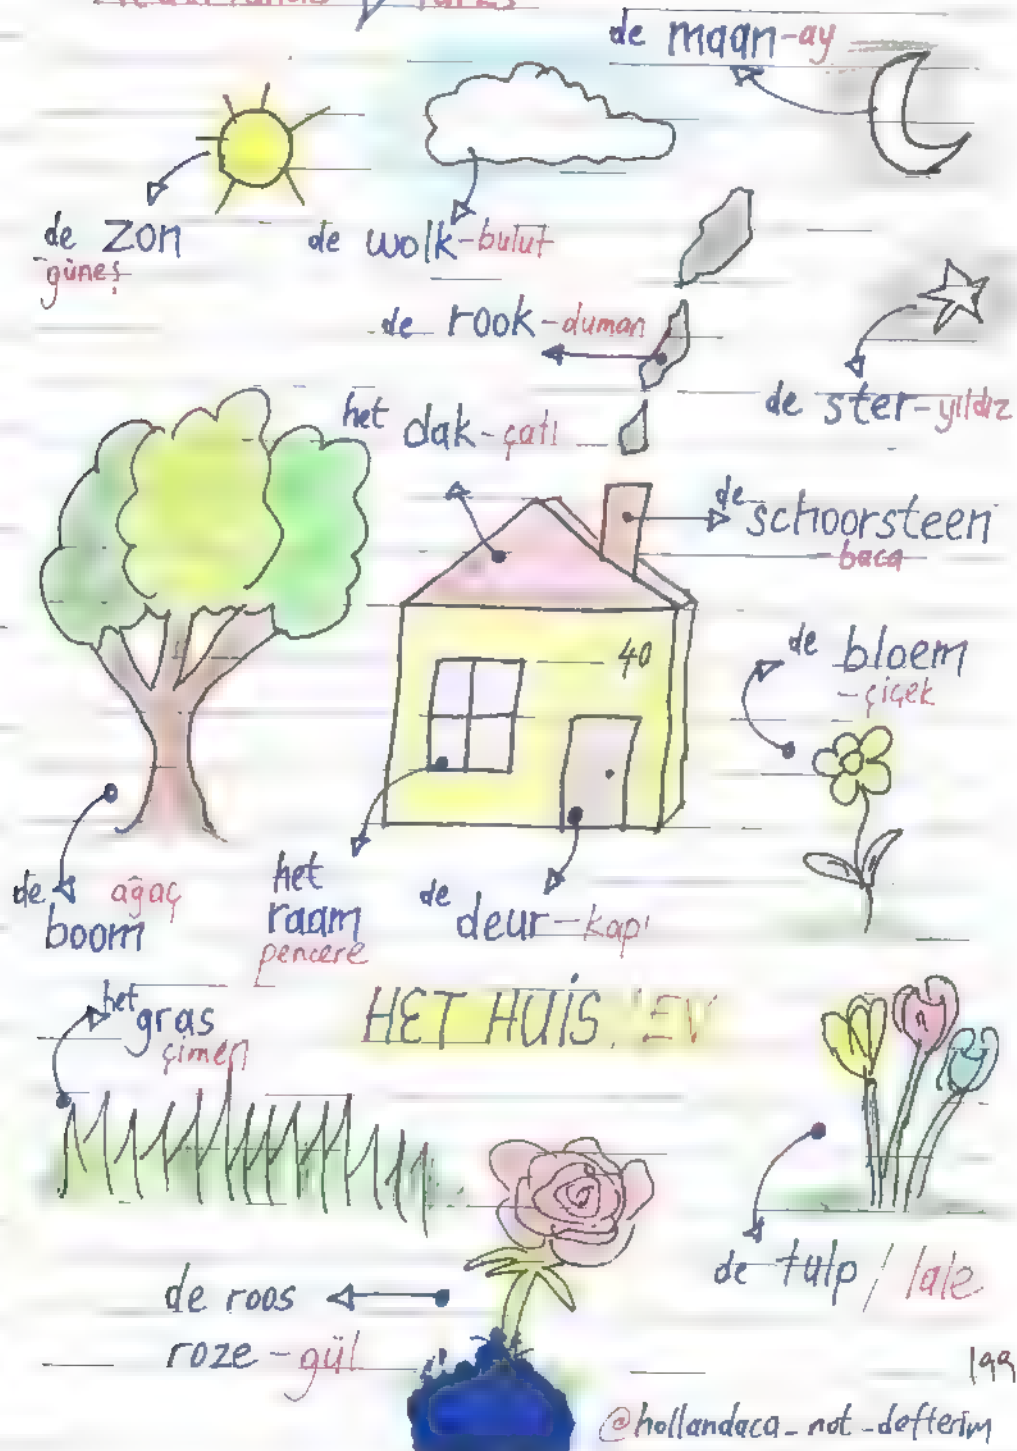 de maan-ay
de zon
güneş
de wolk-bulut
de rook-duman
de ster-yıldız
het dak-çatı
de schoorsteen
baca
40
de bloem
-çiçek
de ağaç
boom
het
raam
pencere
de deur-kapı
het gras
çimen
HET HUİS. EV
de tulp / lale
de roos
roze-gül
199
@hollandaca_not_defterim